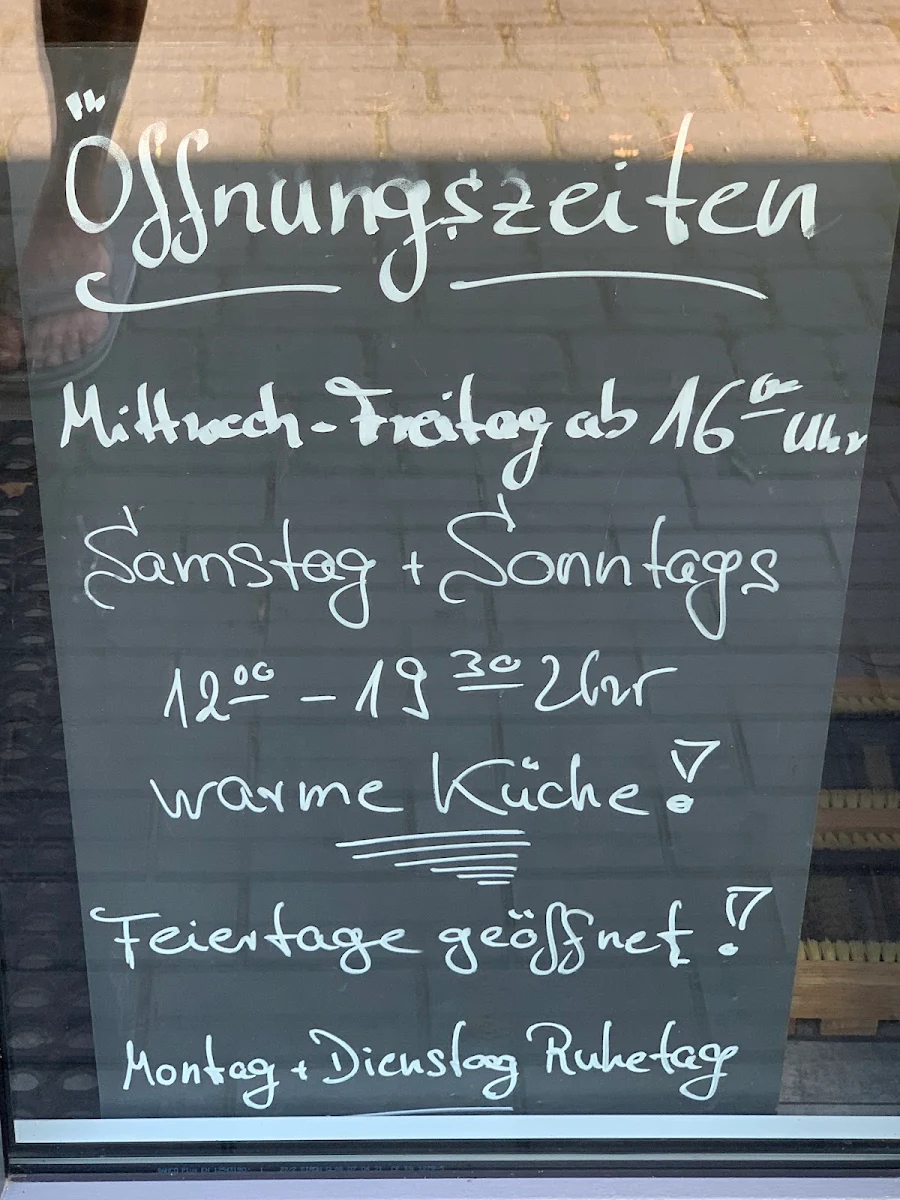 Öffnungszeiten
Mittwoch-Freitag ab 16 00 Uhr
Samstag + Sonntags
12 00 - 19 30 Uhr
warme Küche!
Feiertage geöffnet!
Montag + Dienstag Ruhetage